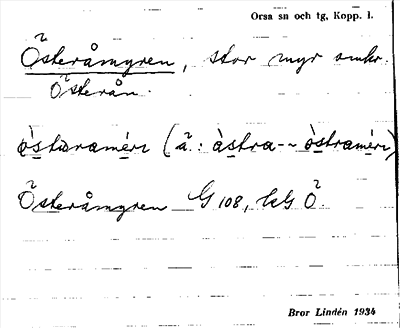 Orsa sn och tg, Kopp. l.
Österåmyren, stor myr omkr.
Österån.
òsturamérı (ä.: àstra-~ òstramérı)
Österåmyren G 108, kG Ö.
Bror Lindén 1934